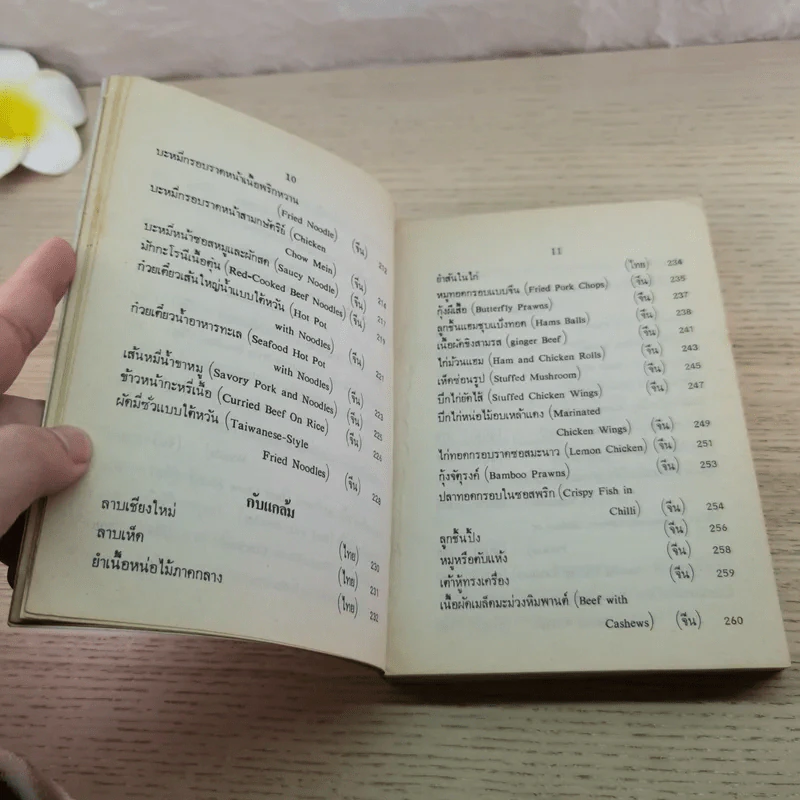 10
บะหมี่กรอบราดหน้าเนื้อพริกหวาน
(Fried Noodle) (จีน) 212
บะหมี่กรอบราดหน้าสามกษัตริย์ (Chicken
Chow Mein) (จีน)
บะหมี่หน้าซอสหมูและผักสด (Saucy Noodle) (จีน) 216
มักกะโรนีเนื้อตุ๋น (Red-Cooked Beef Noodles) (จีน) 217
ก๋วยเตี๋ยวเส้นใหญ่น้ำแบบไต้หวัน (Hot Pot
with Noodles) (จีน) 219
ก๋วยเตี๋ยวน้ำอาหารทะเล (Seafood Hot Pot
with Noodles) (จีน) 221
เส้นหมี่น้ำขาหมู (Savory Pork and Noodles) (จีน) 223
ข้าวหน้ากะหรี่เนื้อ (Curried Beef On Rice) (จีน) 225
ผัดมี่ซั่วแบบไต้หวัน (Taiwanese-Style 226
Fried Noodles) (จีน) 228
กับแกล้ม
ลาบเชียงใหม่ (ไทย) 230
ลาบเห็ด (ไทย) 231
ยำเนื้อหน่อไม้ภาคกลาง (ไทย) 232
11
ยำสันในไก่ (ไทย) 234
หมูทอดกรอบแบบจีน (Fried Pork Chops) (จีน) 235
กุ้งผีเสื้อ (Butterfly Prawns) (จีน) 237
ลูกชิ้นแฮมชุบแป้งทอด (Hams Balls) (จีน) 238
เนื้อผัดขิงสามรส (ginger Beef) (จีน) 241
ไก่ม้วนแฮม (Ham and Chicken Rolls) (จีน) 243
เห็ดซ่อนรูป (Stuffed Mushroom) (จีน) 245
ปีกไก่ยัดไส้ (Stuffed Chicken Wings) (จีน) 247
ปีกไก่หน่อไม้อบเหล้าแดง (Marinated
Chicken Wings) (จีน) 249
ไก่ทอดกรอบราดซอสมะนาว (Lemon Chicken) (จีน) 251
กุ้งจัตุรงค์ (Bamboo Prawns) (จีน) 253
ปลาทอดกรอบในซอสพริก (Crispy Fish in
Chilli) (จีน) 254
ลูกชิ้นปิ้ง (จีน) 256
หมูหรือตับแห้ง (จีน) 258
เต้าหู้ทรงเครื่อง (จีน) 259
เนื้อผัดเมล็ดมะม่วงหิมพานต์ (Beef with
Cashews) (จีน) 260